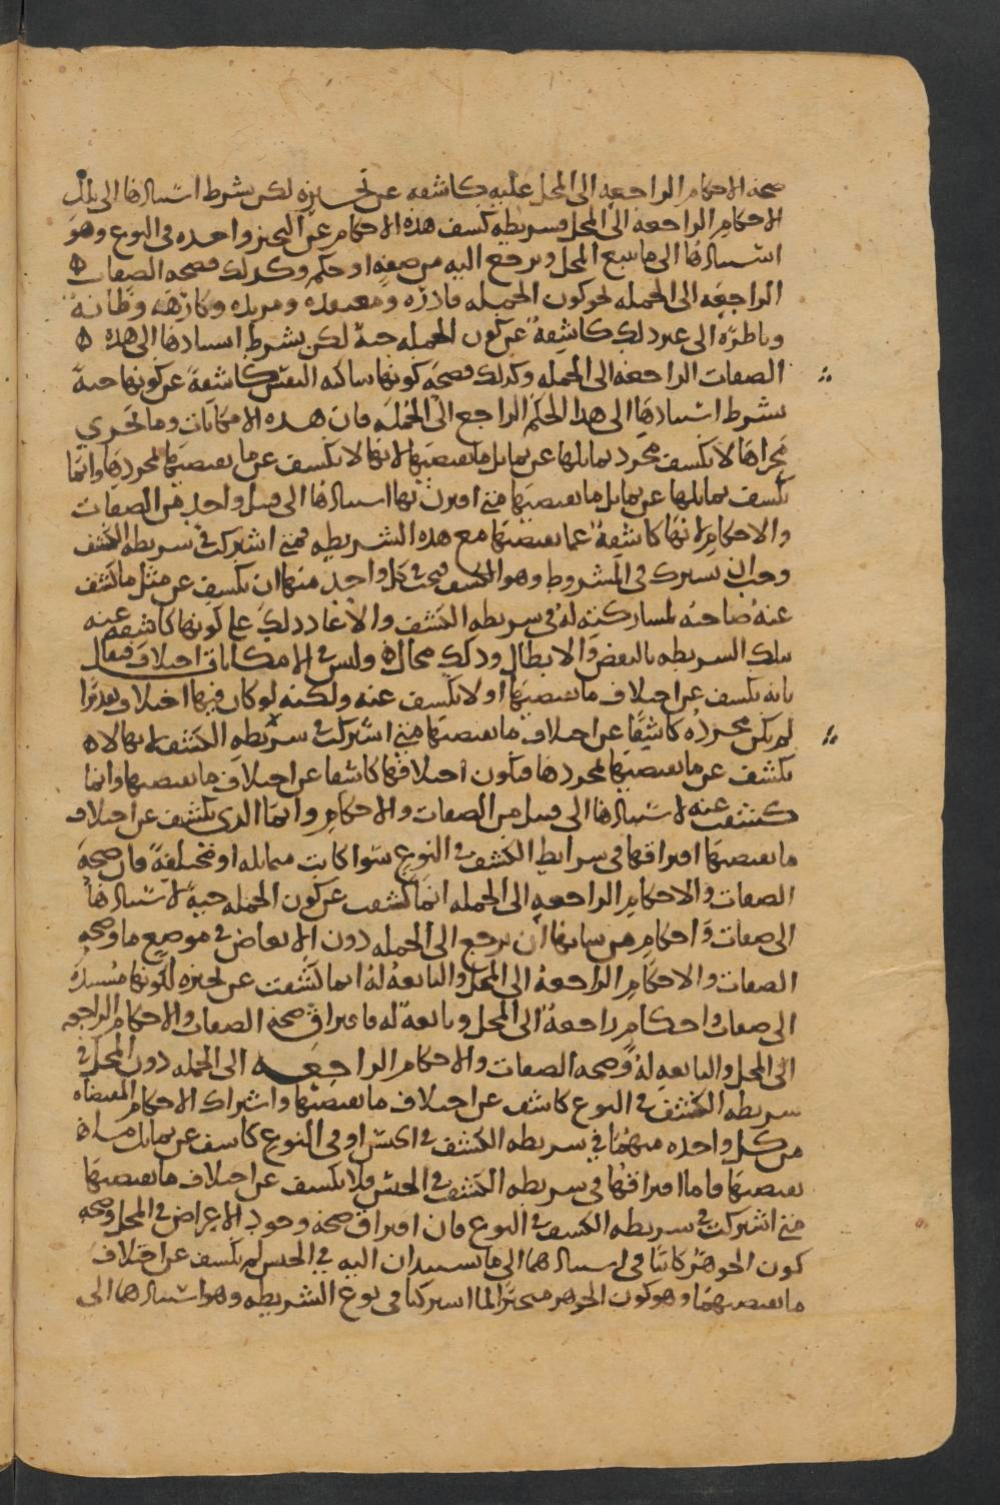 صحة الاحكام الراجعه الى المحل عليه كاشفه عن تحيزه لكن بشرط استنادها الى تلك
الاحكام الراجعه الى المحل وشريطه كشف هذه الاحكام عن التحيز واحده في النوع وهو
استنادها الى ما يتبع المحل ويرجع اليه من صفه او حكم وكذلك فصحه الصفات
الراجعه الى الجمله نحو كون الجمله قادره ومعتقده ومريده وكارهه وظانه
وناظره الى غير ذلك كاشفة عن كون الجمله حيه لكن بشرط استنادها الى هذه
الصفات الراجعه الى الجمله وكذلك فصحه كونها ساكنه النفس كاشفة عن كونها حية
بشرط استنادها الى هذا الحكم الراجع الى الجمله فان هذه الامكانات وما تجري
مجراها لا يكشف مجرد تماثلها عن تماثل ما يقتضيها لانها لا تكشف عن ما يقتضيها بمجردها وانما
يكشف تماثلها عن تماثل ما يقتضيها متى اقترن بها استنادها الى قبيل واحد من الصفات
والاحكام لانها كاشفة عما يقتضيها مع هذه الشريطه فمتى اشتركت في شريطه الكشف
وجب ان تشترك في المشروط وهو الكشف فيجب في كل واحد منها ان يكشف عن مثل ما كشف
عنه صاحبه لمشاركته له في شريطه الكشف والا عاد ذلك على كونها كاشفه عنه
بتلك الشريطه بالنقض والابطال وذلك محال وليس في الامكانات اختلاف فيقال
بانه يكشف عن اختلاف ما يقتضيها او لا يكشف عنه ولكنه لو كان فيها اختلاف تقديرا
لم يكن مجرده كاشفا عن اختلاف ما يقتضيها متى اشتركت في شريطه الكشف لانها لا
تكشف عن ما يقتضيها بمجردها فيكون اختلافها كاشفا عن اختلاف ما يقتضيها وانما
كشفت عنه لاستنادها الى قبيل من الصفات والاحكام وانما الذي يكشف عن اختلاف
ما يقتضيها افتراقها في شرايط الكشف في النوع سوا كانت متماثله او مختلفة فان صحة
الصفات والاحكام الراجعه الى الجمله انما كشفت عن كون الجمله حية لاستنادها
الى صفات واحكام من شانها ان ترجع الى الجمله دون الابعاض في موضع ما وصحه
الصفات والاحكام الراجعة الى المحل والتابعة له انما كشفت عن تحيزه لكونها مستندة
الى صفات واحكام راجعة الى المحل وتابعة له فافتراق صحه الصفات والاحكام الراجعه
الى المحل والتابعه له وصحه الصفات والاحكام الراجعه الى الجمله دون المحل في
شريطه الكشف في النوع كاشف عن اختلاف ما يقتضيها واشتراك الاحكام المقتضاه
من كل واحده منهما في شريطه الكشف في الجنس او في النوع كاشف عن تماثل ما
يقتضيها فاما افتراقها في شريطه الكشف في الجنس فلا يكشف عن اختلاف ما يقتضيها
متى اشتركت في شريطه الكشف في النوع فان افتراق صحه وجود الاعراض في المحل وصحه
كون الجوهر كائنا في استنادهما الى ما يستندان اليه في الجنس لم يكشف عن اختلاف
ما يقتضيهما وهو كون الجوهر متحيزا لما اشتركا في نوع الشريطه وهو استنادهما الى